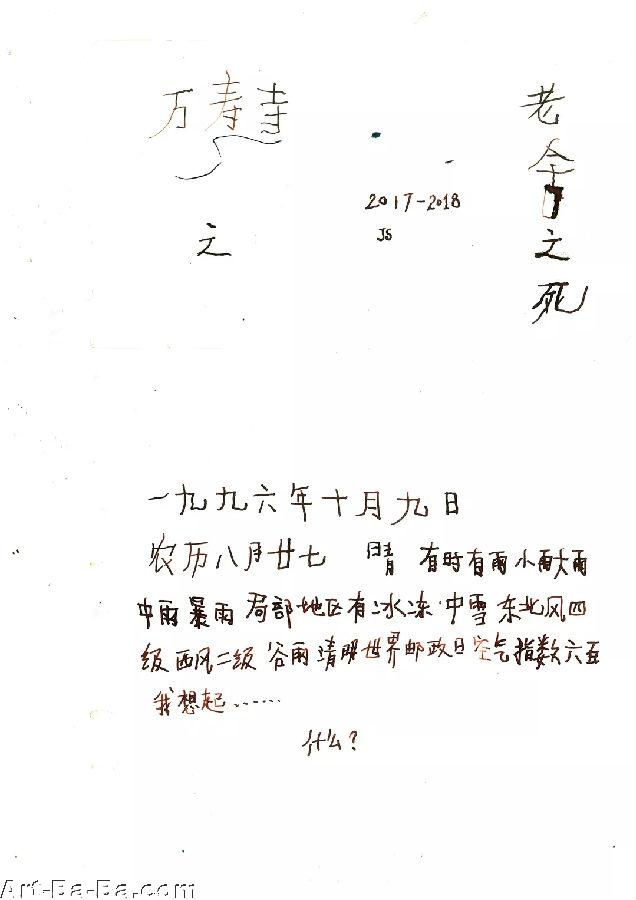 万寿寺
2017-2018
JS
老舍之死
一九九六年十月九日
农历八月廿七 晴 有时有雨小雨大雨
中雨暴雨 局部地区有冰冻 中雪 东北风四
级 西风二级 谷雨 清明 世界邮政日 空气指数六五
我想起……
什么？
Art-Ba-Ba.com